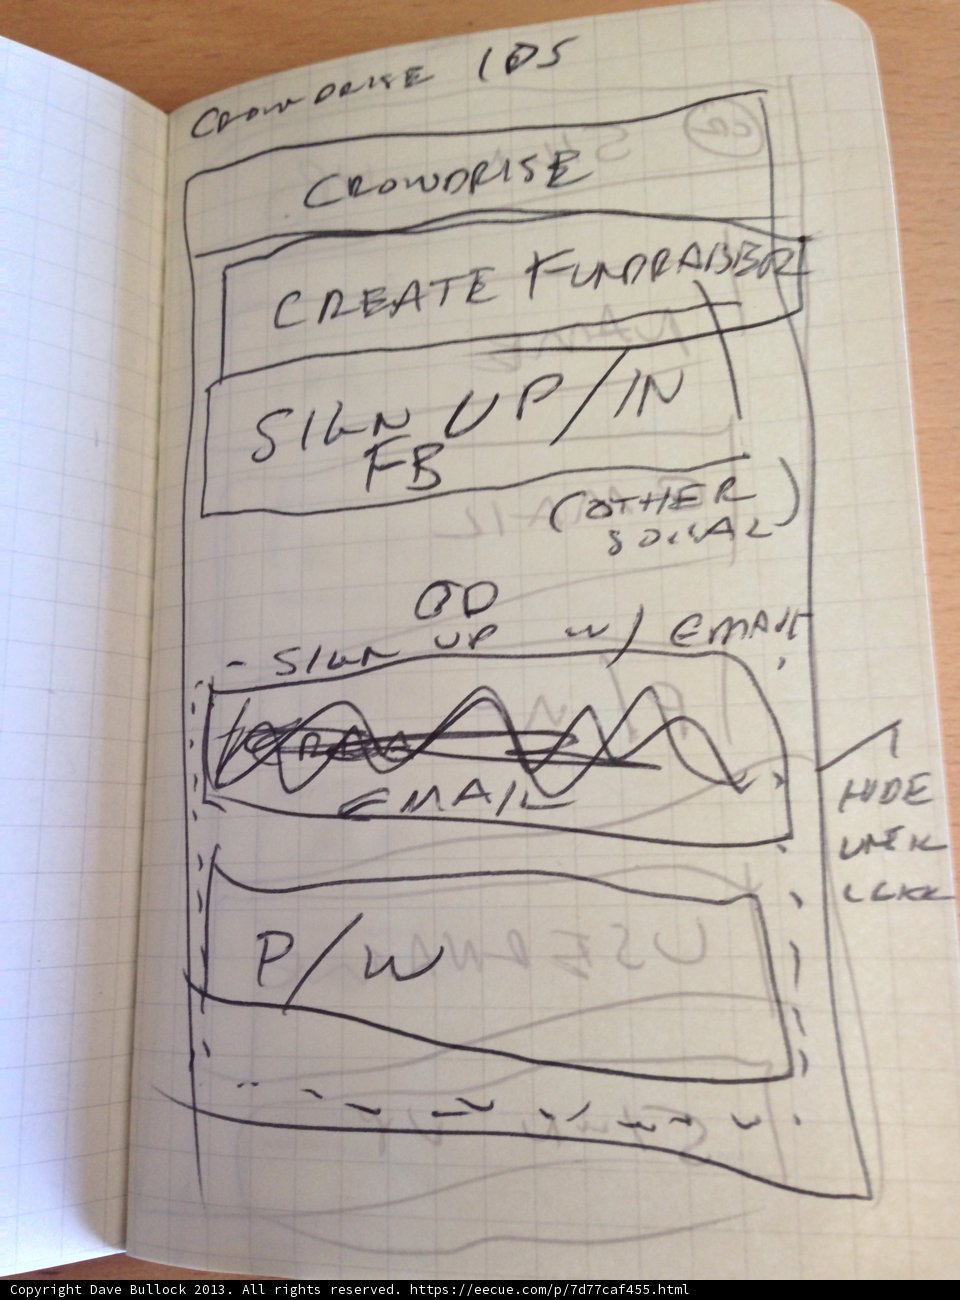 CROWDRISE IOS
CROWDRISE
CREATE FUNDRAISER
SIGN UP/IN
FB
(OTHER
SOCIAL)
OR
- SIGN UP w/ EMAIL
EMAIL
HIDE
UNTIL
CLICK
P/W
Copyright Dave Bullock 2013. All rights reserved. https://eecue.com/p/7d77caf455.html